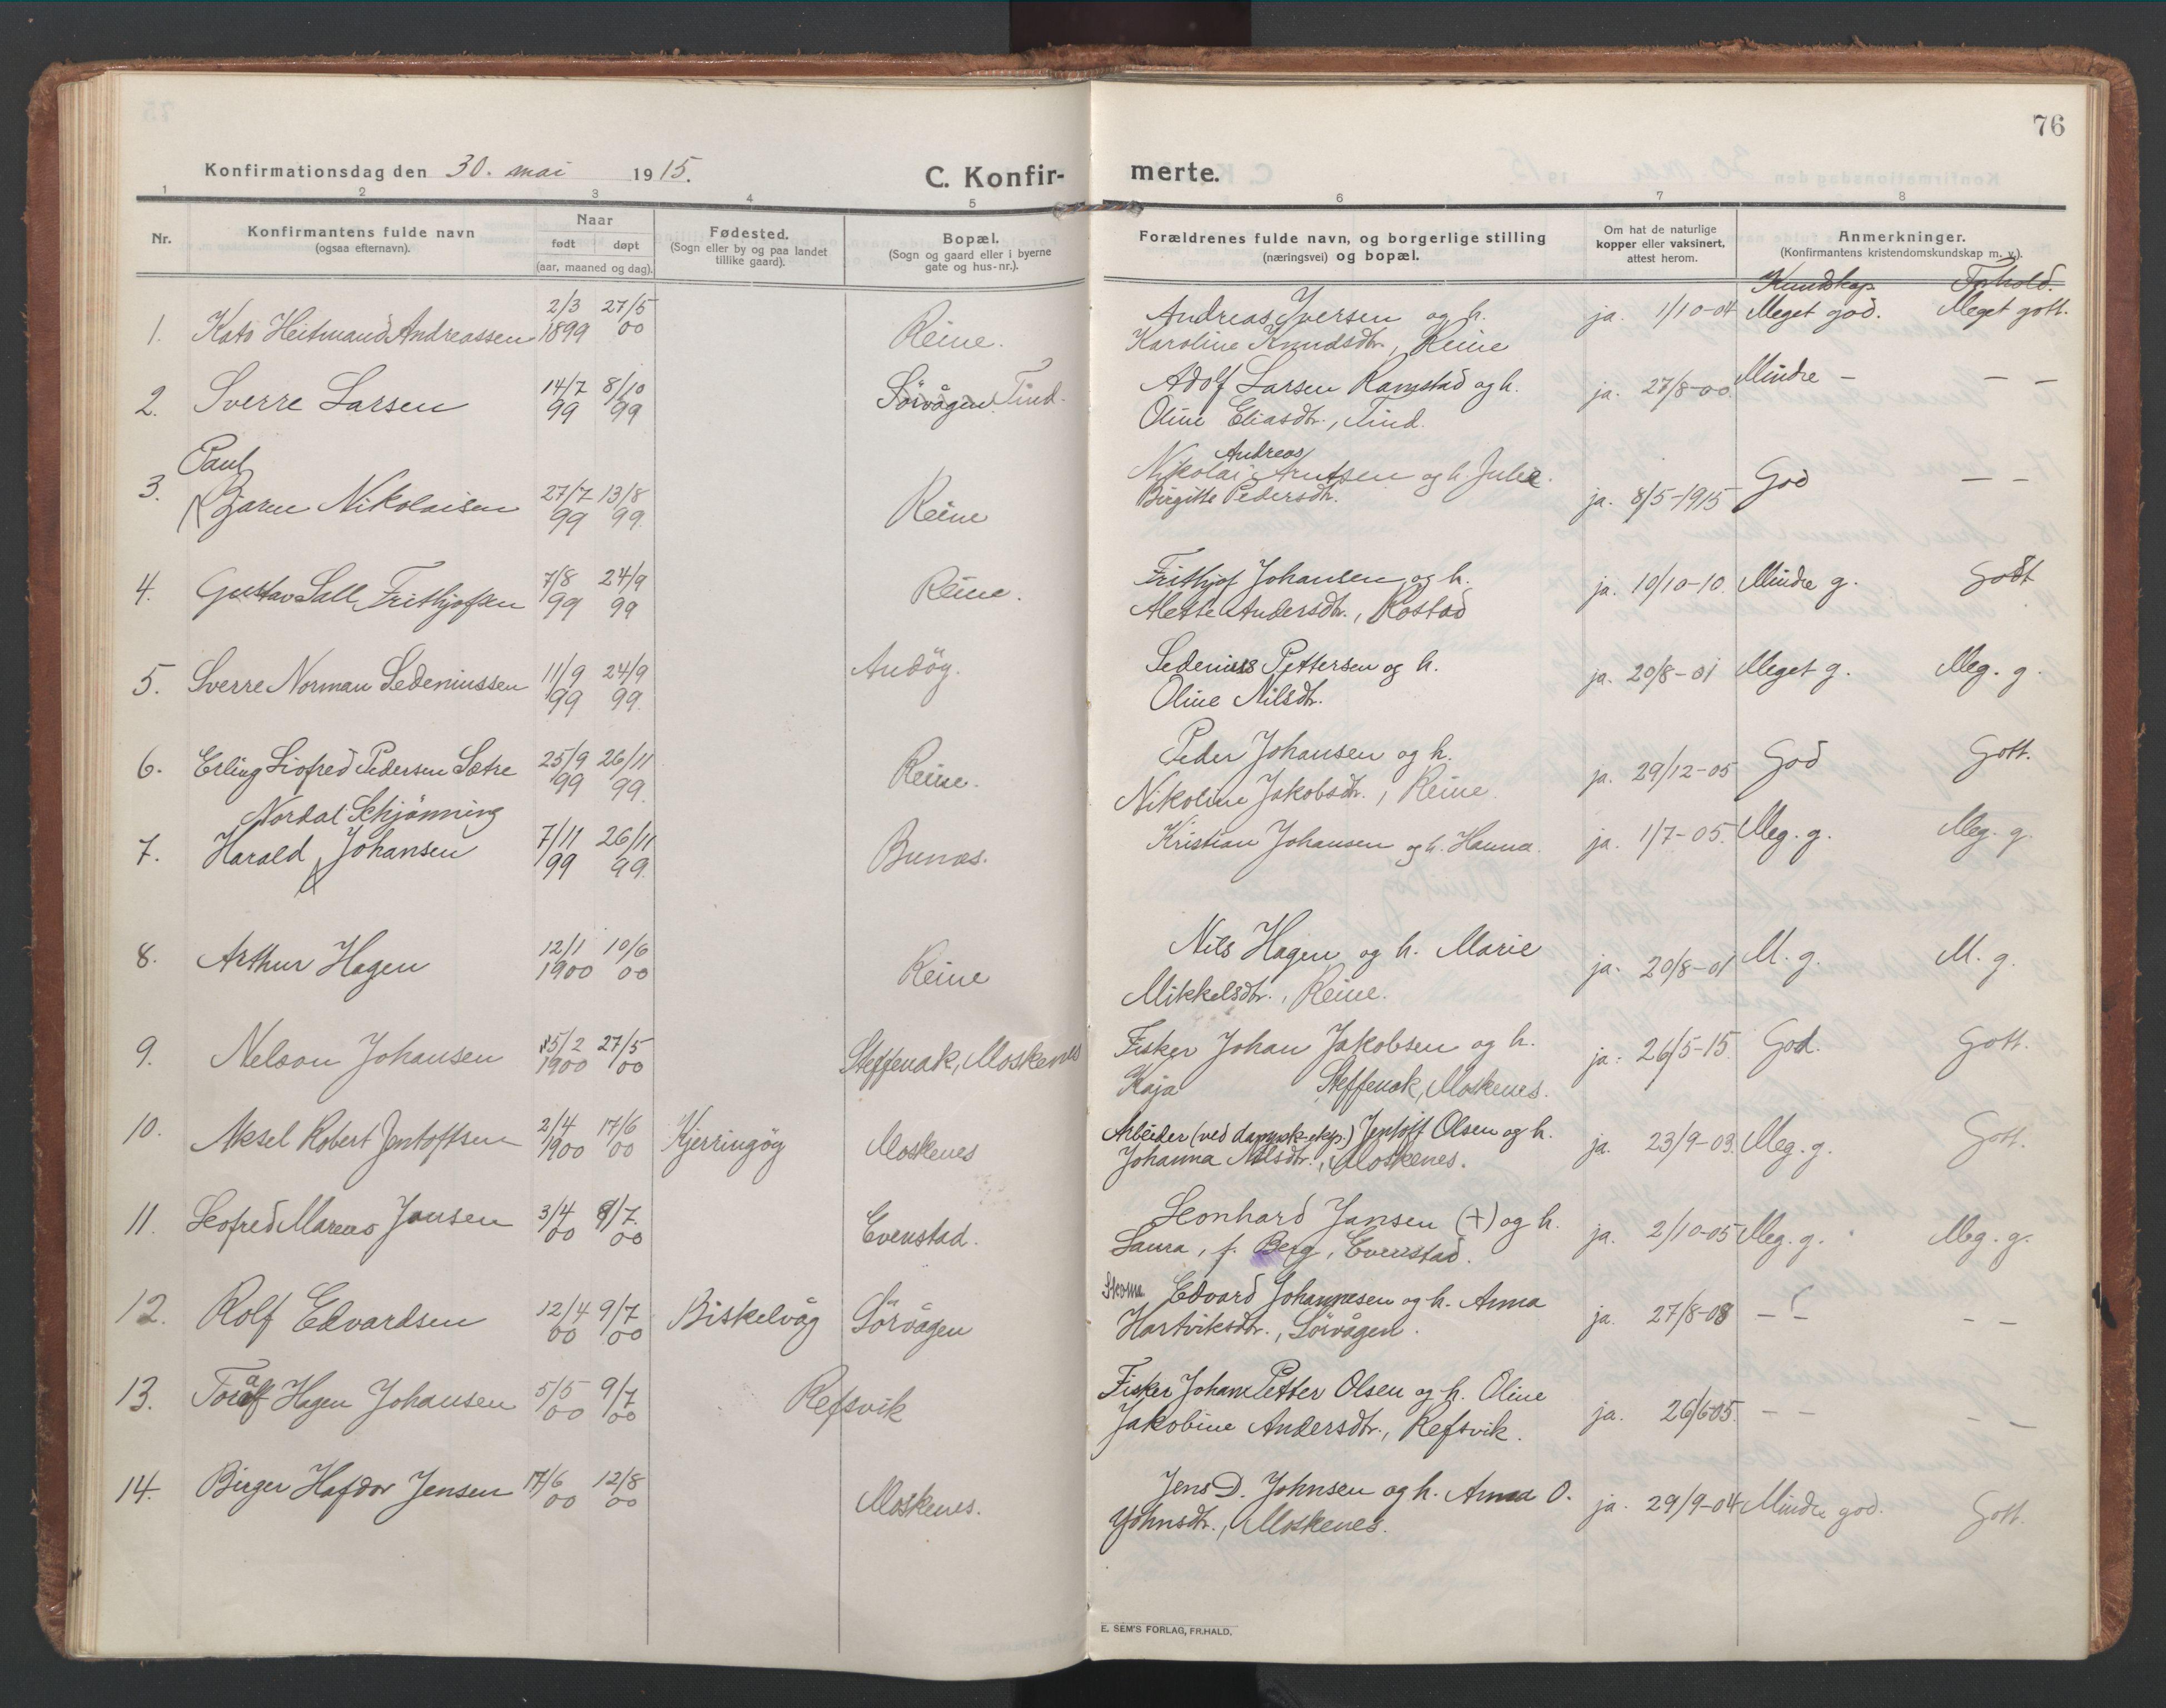 76
Konfirmationsdag den 30. mai 1915.
C. Konfir-
merte.
1 2 3 4 5 6 7 8
Nr.
Konfirmantens fulde navn
(ogsaa efternavn).
Naar
født døpt
(aar, maaned og dag).
Fødested.
(Sogn eller by og paa landet
tillike gaard).
Bopæl.
(Sogn og gaard eller i byerne
gate og hus-nr.).
Forældrenes fulde navn, og borgerlige stilling
(næringsvei) og bopæl.
Om hat de naturlige
kopper eller vaksinert,
attest herom.
Anmerkninger.
(Konfirmantens kristendomskundskap m. v.).
Kundskap. Forhold.
1. Kato Heitmand Andreassen 2/3 1899 27/5 00 Reine.
Andreas Iversen og h.
Karoline Knudsdtr., Reine
ja. 1/10-04 Meget god. Meget gott.
2. Sverre Larsen 14/7 99 8/10 99 Sörvågen. Tind.
Adolf Larsen Ramstad og h.
Oline Eliasdtr., Tind.
ja. 27/8-00. Mindre — — —
Paul
3. Bjarne Nikolaisen 27/7 99 13/8 99. Reine
Andreas
Nikolai Arntsen og h. Julie
Birgitte Pedersdtr.
ja. 8/5-1915 God — —
4. Gustav Sall Frithjofsen 7/8 99 24/9 99 Reine.
Frithjof Johansen og h.
Mette Andersdtr., Rostad
ja. 10/10-10. Mindre g. Godt
5. Sverre Norman Sedeniussen 11/9 99 24/9 99. Andöy.
Sedenius Pettersen og h.
Oline Nilsdtr.
ja. 20/8-01 Meget g. Meg. g.
6. Erling Liofred Pedersen Sætre 25/9 99 26/11 99. Reine.
Peder Johansen og h.
Nikoline Jakobsdtr., Reine.
ja. 29/12-05 God Gott.
Nordal Schjönning
7. Harald Johansen 7/11 99 26/11 99. Bunes.
Kristian Johansen og h. Hanna.
ja. 1/7-05. Meg. g. Meg. g.
8. Arthur Hagen 12/1 1900 10/6 00 Reine
Nils Hagen og h. Marie
Mikkelsdtr., Reine.
ja. 20/8-01 M. g. M. g.
9. Nelson Johansen 5/2 1900 27/5 00 Steffenak, Moskenes
Fisker Johan Jakobsen og h.
Kaja Steffenak, Moskenes.
ja. 26/5-15. God. Gott.
10. Aksel Robert Jentoftsen 2/4 1900 17/6 00 Kjerringöy Moskenes
Arbeider (ved dampsk-eksp.) Jentoft Olsen og h.
Johanna Nilsdtr., Moskenes.
ja. 23/9-03. Meg. g. Gott.
11. Leofred Marenus Jansen 3/4 00 8/7. 00 Evenstad.
Leonhard Jansen (+) og h.
Laura, f. Berg, Evenstad.
ja. 2/10-05 Meg. g. Meg. g.
12. Rolf Edvardsen 12/4 00 9/7 00 Biskelvåg Sörvågen
Skom. Edvard Johannesen og h. Anna
Hartviksdtr., Sörvågen.
ja. 27/8-08 — — — —
13. Toralf Hagen Johansen 5/5 00 9/7 00 Refsvik
Fisker Johan Petter Olsen og h. Oline
Jakobine Andersdtr., Refsvik.
ja. 26/6-05. — — — —
14. Birger Hafdor Jensen 17/6 00 12/8 00 Moskenes.
Jens D. Johnsen og h. Anna O.
Johnsdtr., Moskenes.
ja. 29/9-04 Mindre god. Gott.
E. SEM'S FORLAG, FR.HALD.